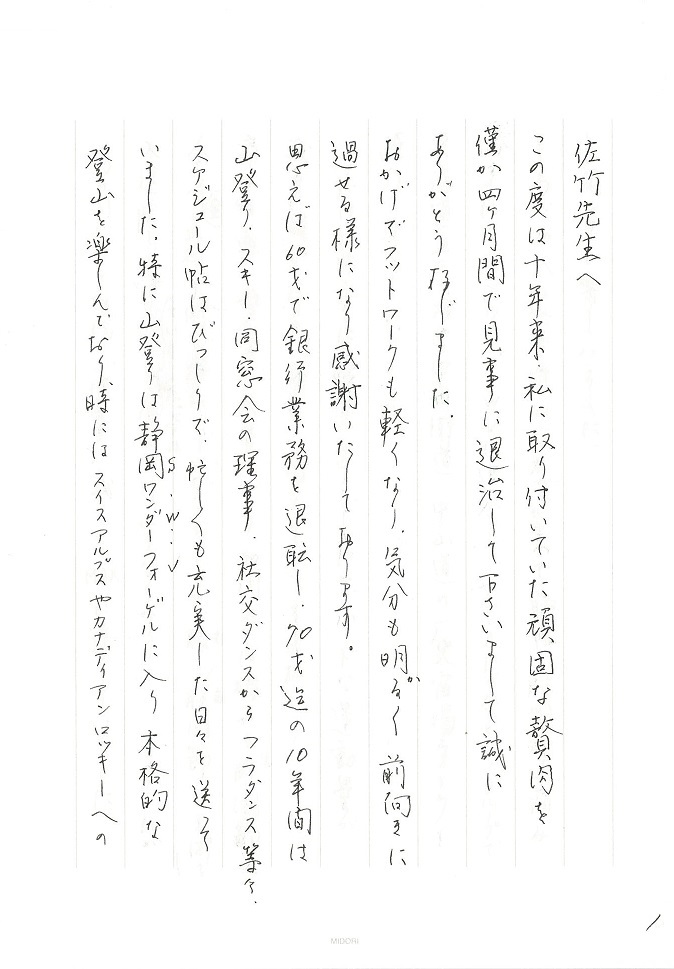 佐竹先生へ
この度は十年来、私に取り付いていた頑固な贅肉を
僅か四ヶ月間で見事に退治して下さいまして誠に
ありがとう存じました。
おかげでフットワークも軽くなり、気分も明かるく前向きに
過せる様になり感謝いたして居ります。
思えば60才で銀行業務を退転し、70才迄の10年間は
山登り、スキー、同窓会の理事、社交ダンスからフラダンス等々、
スケジュール帖はびっしりで、忙しくも充実した日々を送って
いました。特に山登りは静岡ワンダーフォーゲルに入り本格的な
S.W.V
登山を楽しんでおり、時にはスイスアルプスやカナディアンロッキーへの
1
MIDORI